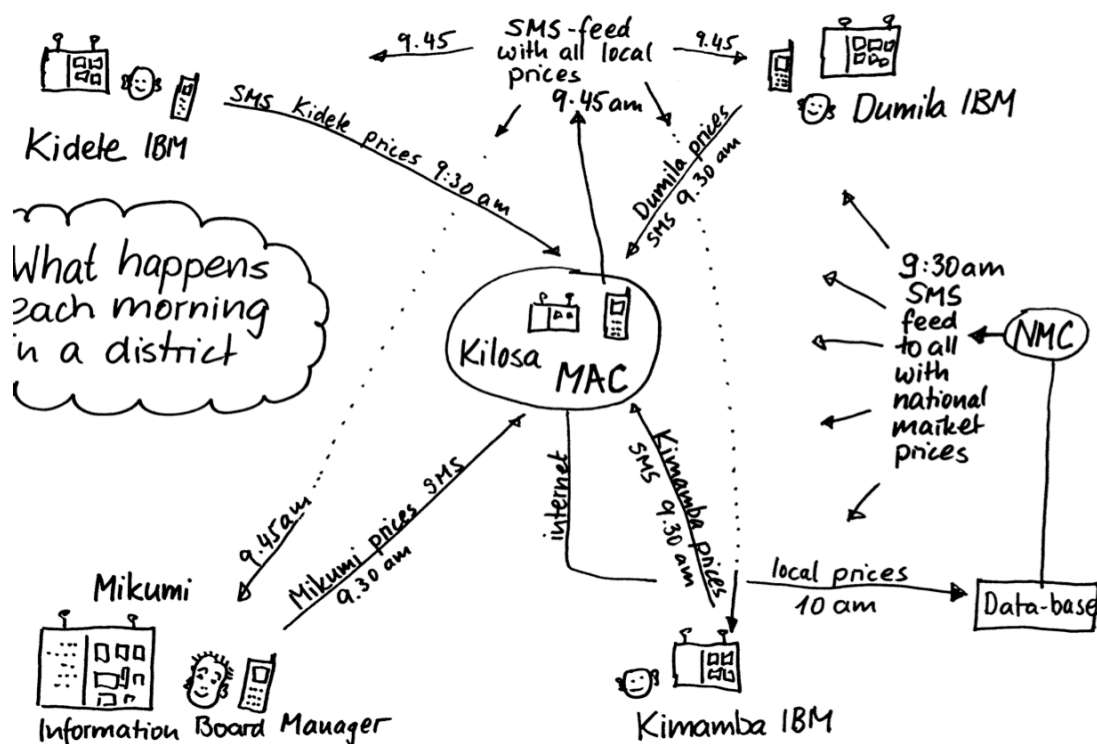 9.45
SMS-feed
with all local
prices
9.45am
9.45
Kidete IBM
Dumila IBM
SMS Kidete prices 9:30 am
Dumila prices
SMS 9.30 am
What happens
each morning
in a district
Kilosa
MAC
9:30am
SMS
feed
to all
with
national
market
prices
NMC
internet
Kimamba prices
SMS 9.30 am
9.45am
Mikumi prices SMS
9.30 am
local prices
10 am
Data-base
Mikumi
Information Board Manager
Kimamba IBM